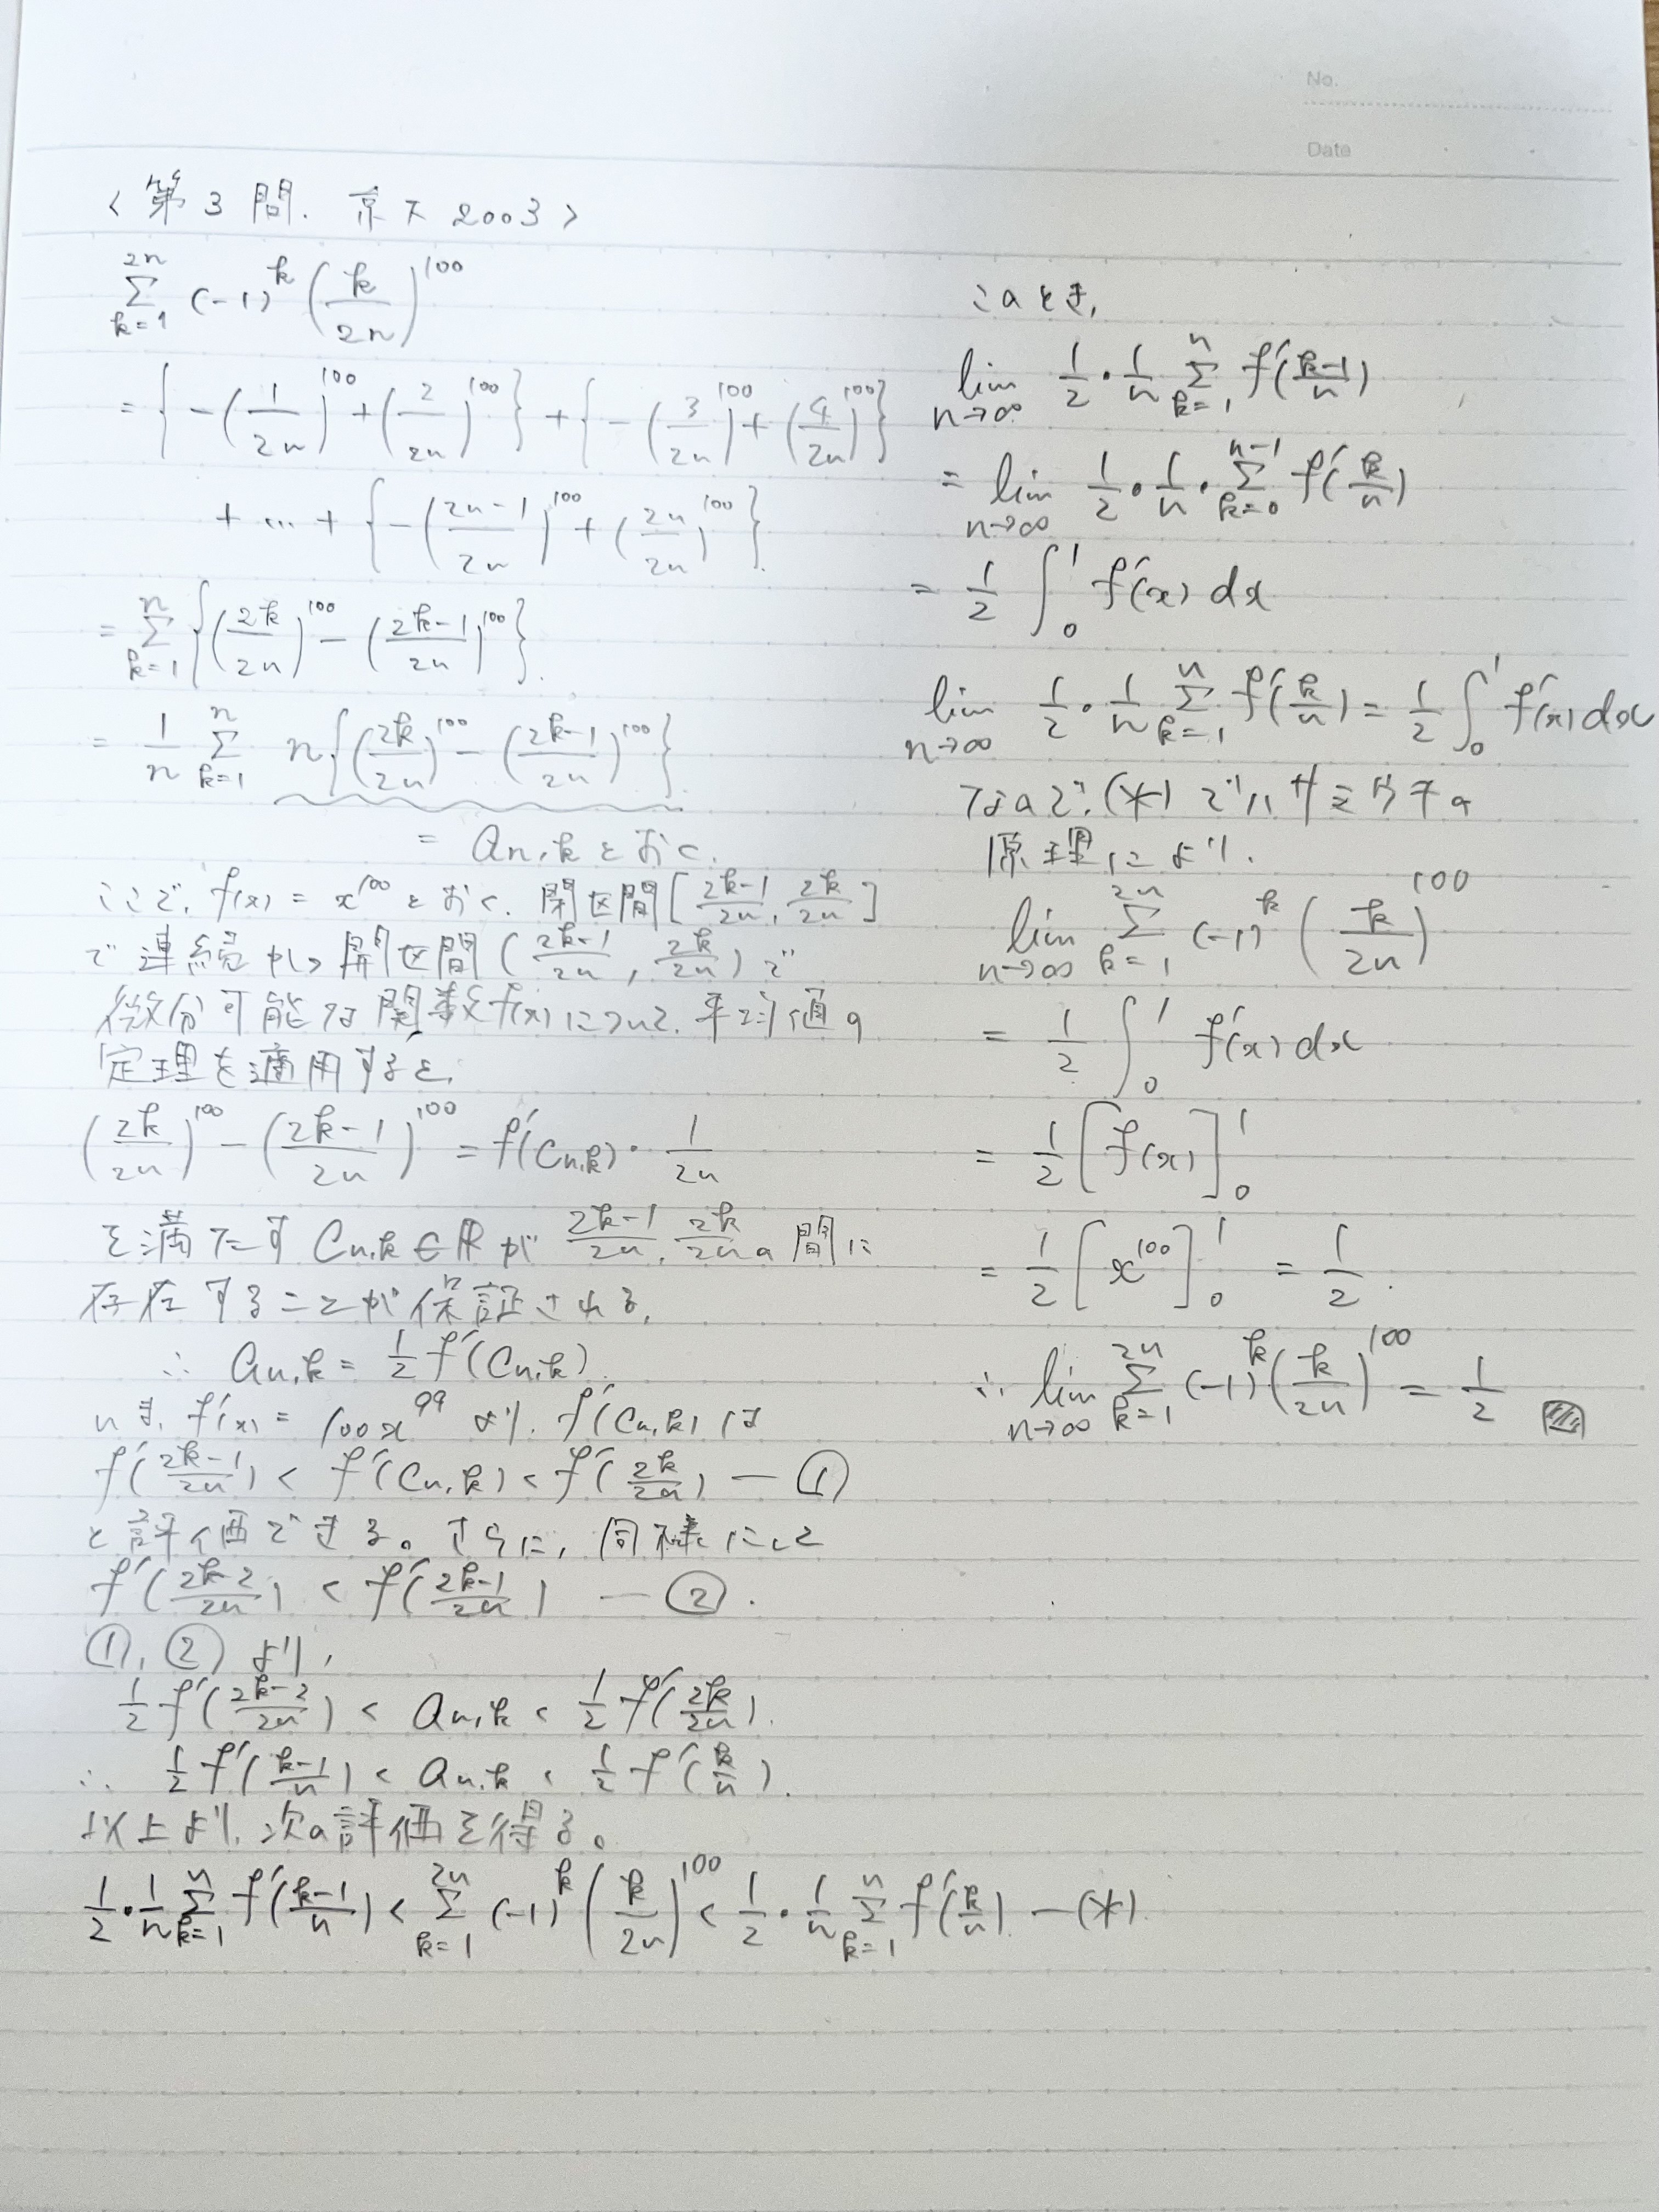 No.
Date
<第3問. 京大2003>
\sum_{k=1}^{2n} (-1)^k (\frac{k}{2n})^{100}
= \{-(\frac{1}{2n})^{100} + (\frac{2}{2n})^{100}\} + \{-(\frac{3}{2n})^{100} + (\frac{4}{2n})^{100}\}
+ … + \{-(\frac{2n-1}{2n})^{100} + (\frac{2n}{2n})^{100}\}.
= \sum_{k=1}^{n} \{(\frac{2k}{2n})^{100} - (\frac{2k-1}{2n})^{100}\}.
= \frac{1}{n} \sum_{k=1}^{n} n\{(\frac{2k}{2n})^{100} - (\frac{2k-1}{2n})^{100}\}.
= a_{n,k}とおく.
ここで, f(x) = x^{100}とおく. 閉区間[\frac{2k-1}{2n}, \frac{2k}{2n}]
で連続かつ開区間(\frac{2k-1}{2n}, \frac{2k}{2n})で
微分可能な関数f(x)について, 平均値の
定理を適用すると,
(\frac{2k}{2n})^{100} - (\frac{2k-1}{2n})^{100} = f'(c_{n,k})・\frac{1}{2n}
を満たす c_{n,k}∈ℝが \frac{2k-1}{2n}, \frac{2k}{2n}の間に
存在することが保証される.
∴ a_{n,k} = \frac{1}{2} f'(c_{n,k})
いま, f'(x) = 100x^{99} より, f'(c_{n,k})は
f'(\frac{2k-1}{2n}) < f'(c_{n,k}) < f'(\frac{2k}{2n}) ―①
と評価できる。さらに, 同様にして
f'(\frac{2k-2}{2n}) < f'(\frac{2k-1}{2n}) ―②.
①, ②より,
\frac{1}{2} f'(\frac{2k-2}{2n}) < a_{n,k} < \frac{1}{2} f'(\frac{2k}{2n}).
∴ \frac{1}{2} f'(\frac{k-1}{n}) < a_{n,k} < \frac{1}{2} f'(\frac{k}{n}).
以上より, 次の評価を得る。
\frac{1}{2}・\frac{1}{n} \sum_{k=1}^{n} f'(\frac{k-1}{n}) < \sum_{k=1}^{2n} (-1)^k (\frac{k}{2n})^{100} < \frac{1}{2}・\frac{1}{n} \sum_{k=1}^{n} f'(\frac{k}{n}) ―(*)
このとき,
\lim_{n→∞} \frac{1}{2}・\frac{1}{n} \sum_{k=1}^{n} f'(\frac{k-1}{n})
= \lim_{n→∞} \frac{1}{2}・\frac{1}{n}・\sum_{k=0}^{n-1} f'(\frac{k}{n})
= \frac{1}{2} \int_0^1 f'(x) dx
\lim_{n→∞} \frac{1}{2}・\frac{1}{n} \sum_{k=1}^{n} f'(\frac{k}{n}) = \frac{1}{2} \int_0^1 f'(x) dx
なので, (*)で, はさみうちの
原理により.
\lim_{n→∞} \sum_{k=1}^{2n} (-1)^k (\frac{k}{2n})^{100}
= \frac{1}{2} \int_0^1 f'(x) dx
= \frac{1}{2} [f(x)]_0^1
= \frac{1}{2} [x^{100}]_0^1 = \frac{1}{2}.
∴ \lim_{n→∞} \sum_{k=1}^{2n} (-1)^k (\frac{k}{2n})^{100} = \frac{1}{2}